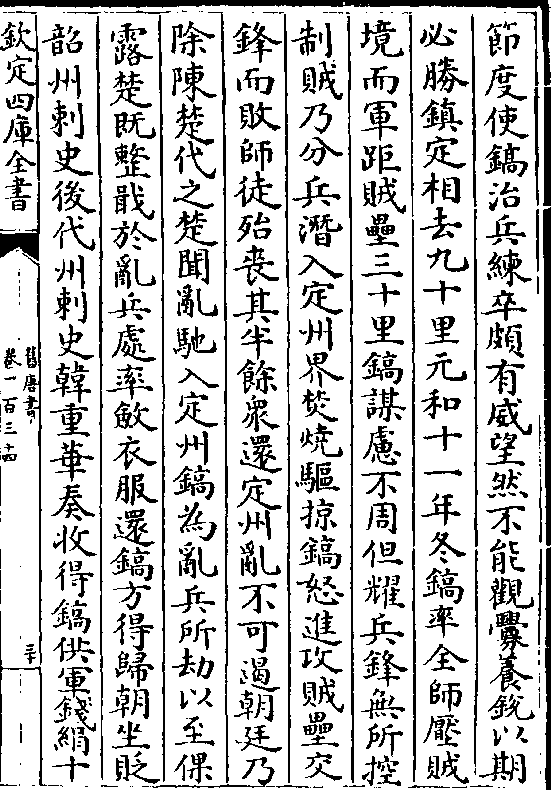 節度使鎬治兵練卒頗有威望然不能觀釁養銳以期
必勝鎮定相去九十里元和十一年冬鎬率全師壓賊
境而軍距賊壘三十里鎬謀慮不周但耀兵鋒無所控
制賊乃分兵潛入定州界焚燒驅掠鎬怒進攻賊壘交
鋒而敗師徒殆喪其半餘衆還定州亂不可遏朝廷乃
除陳楚代之楚聞亂馳入定州鎬為亂兵所劫以至倮
露楚既整戢於亂兵處率斂衣服還鎬方得歸朝坐貶
韶州刺史後代州刺史韓重華奏收得鎬供軍錢絹十
欽定四庫全書
舊唐書
卷一百三十四
三十